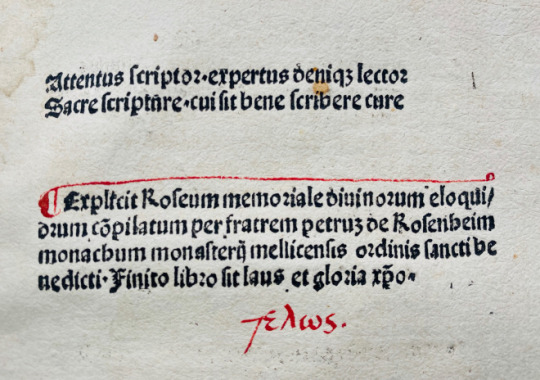 Attentus scriptor·expertus deniqꝫ lector
Sacre scripture·cui sit bene scribere cure
Explicit Roseum memoriale diuinorum eloqui/
orum cōpilatum per fratrem petruꝫ de Rosenheim
monachum monasterij mellicensis ordinis sancti be
nedicti·Finito libro sit laus et gloria xp̄o·
τελως.